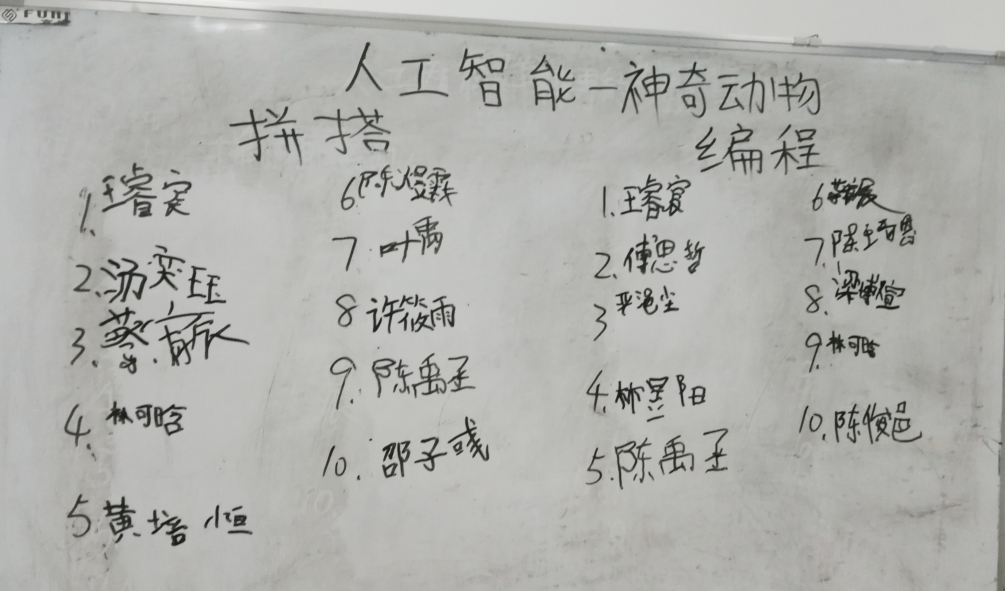 FUNI
人工智能-神奇动物
拼搭
编程
1.王睿寔
2.汤奕珏
3.蔡
4.林可晗
5黄培恒
6陈煜霖
7叶禹
8许筱雨
9.陈禹丞
10.邵子彧
1.王睿寔
2.傅思哲
3
4.林昱阳
5.陈禹丞
6
7.陈
8.梁
9.林可晗
10.陈俊邑